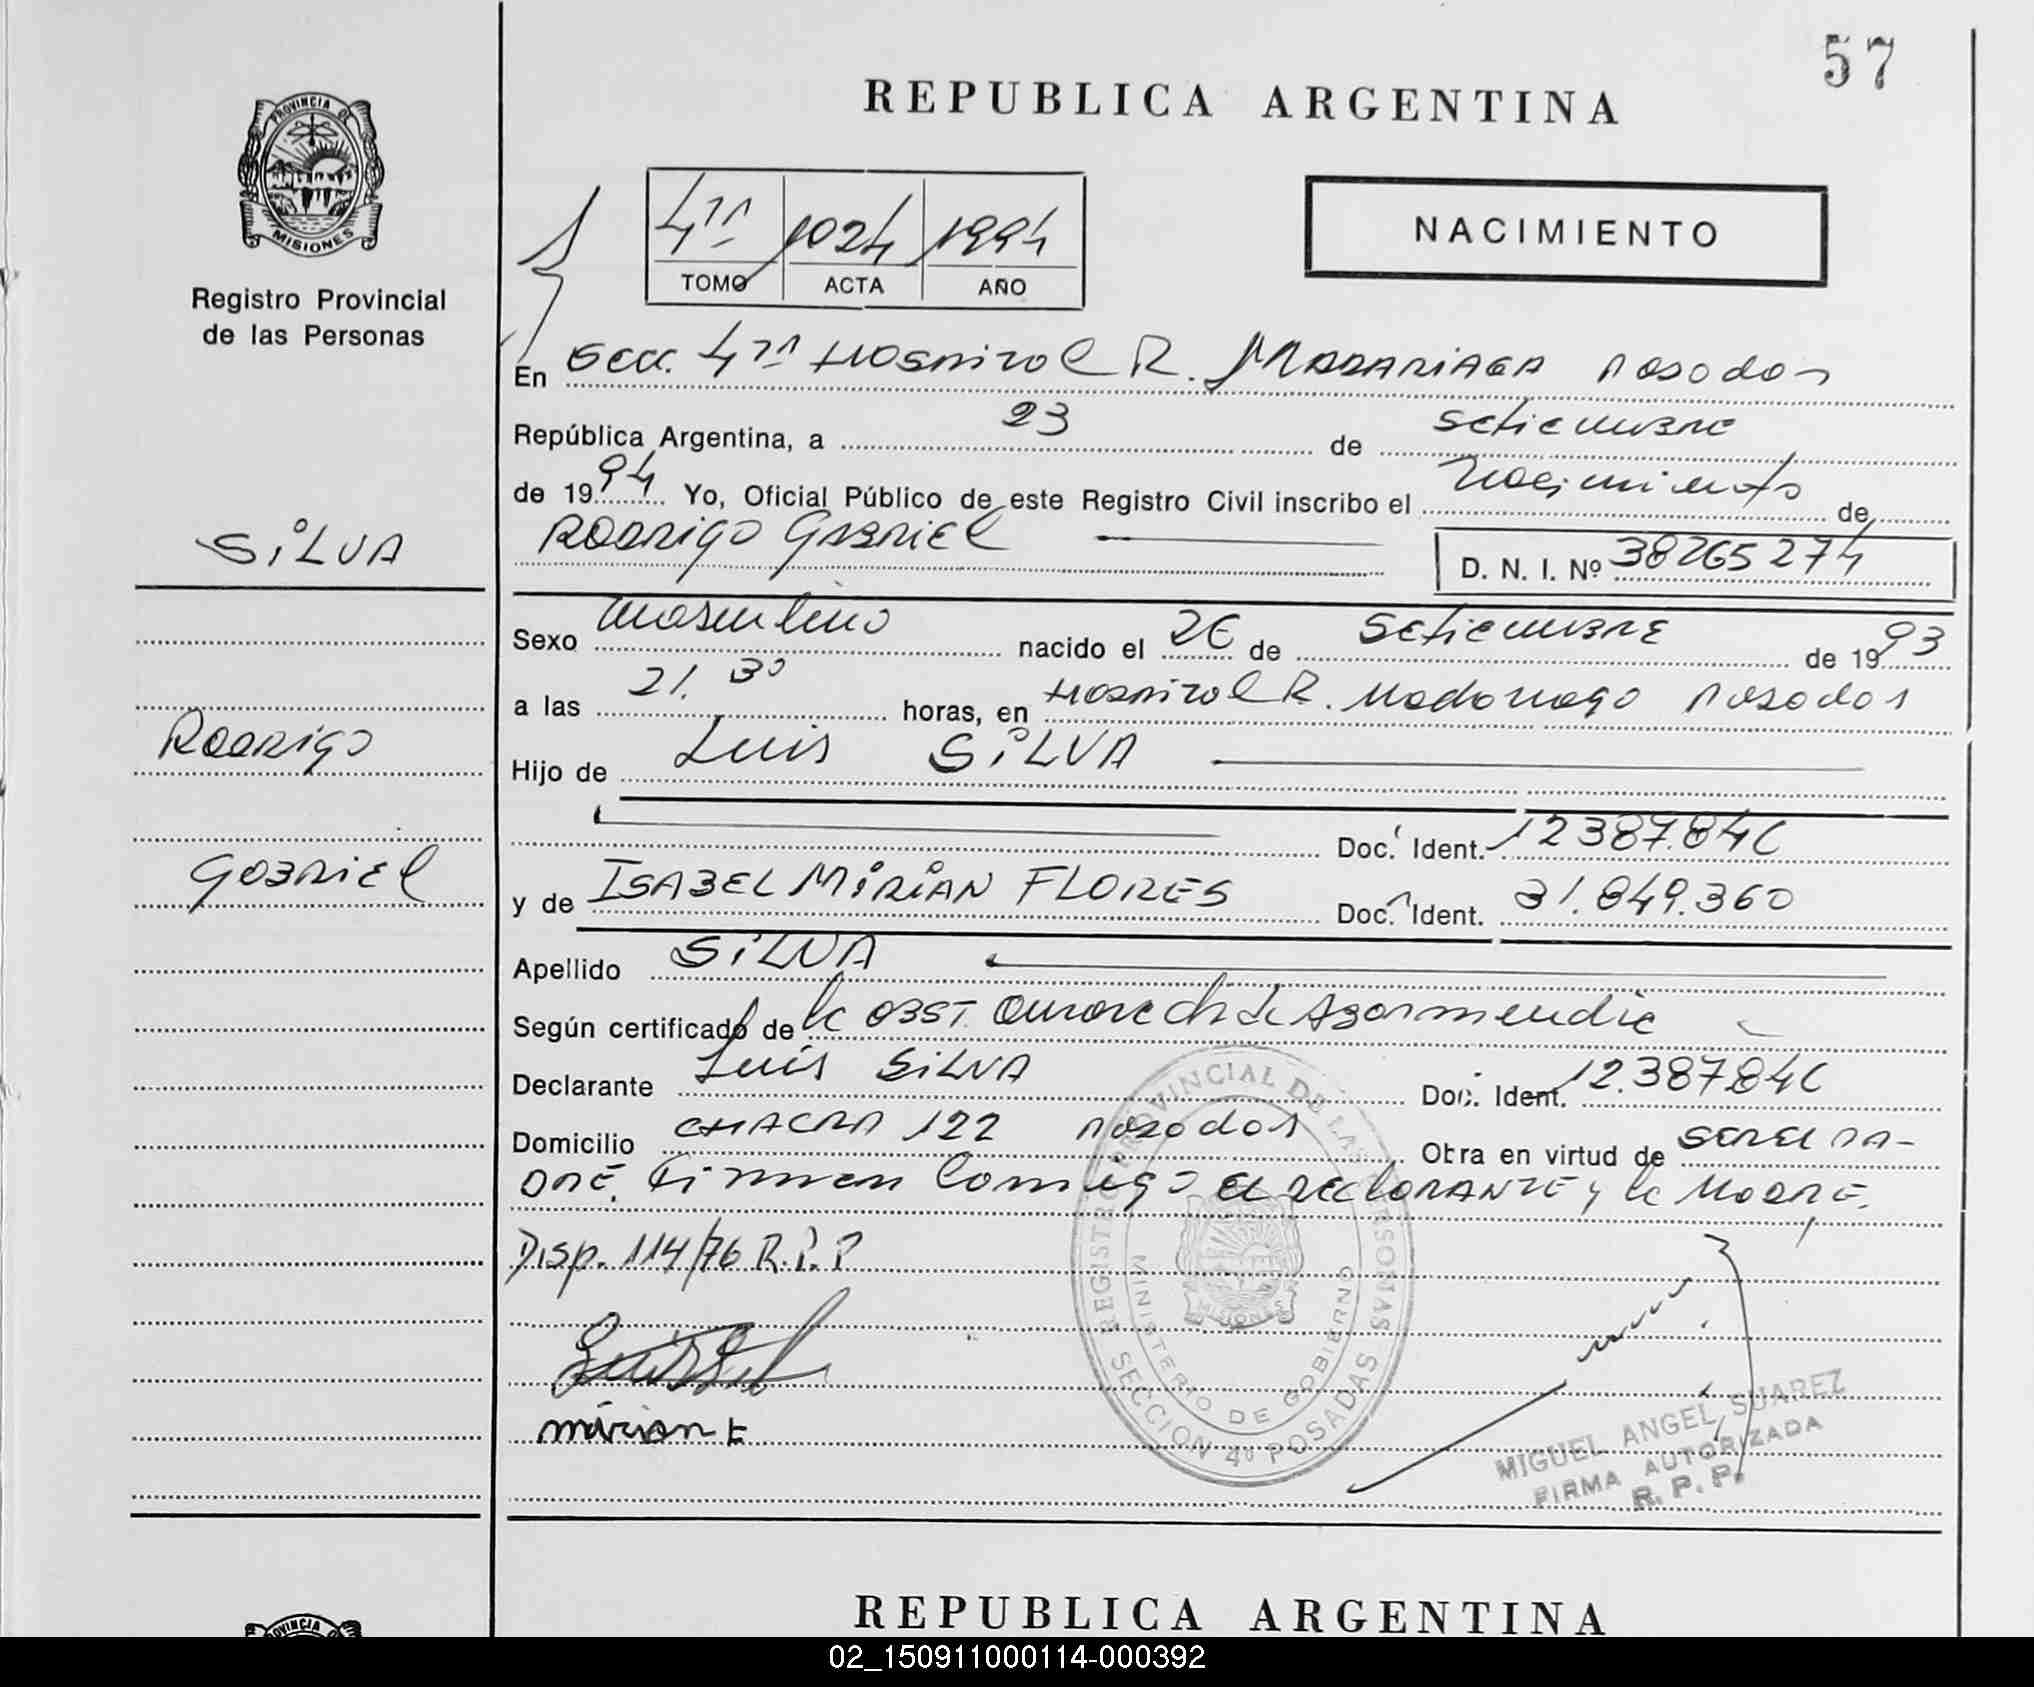 57
REPUBLICA ARGENTINA
PROVINCIA DE
MISIONES
Registro Provincial
de las Personas
4ta 1024 1994
TOMO ACTA AÑO
NACIMIENTO
En Secc. 4ta Hospital R. MADARIAGA Posadas
República Argentina, a 23 de Setiembre
de 1994 Yo, Oficial Público de este Registro Civil inscribo el Nacimiento de
RODRIGO GABRIEL D. N. I. Nº 38265274
SILVA
Sexo masculino nacido el 26 de SETIEMBRE de 1993
a las 21.30 horas, en Hospital R. Madariaga Posadas
Rodrigo
Hijo de Luis SILVA
Doc. Ident. 12387.846
Gabriel
y de ISABEL MIRIAN FLORES Doc. Ident. 31.849.360
Apellido SILVA
Según certificado de la OBST. Aurora Ch de Azarmendia
Declarante Luis SILVA Doc. Ident. 12.387846
Domicilio CHACRA 122 Posadas Otra en virtud de SER EL PA-
DRE. Firman Conmigo el DECLARANTE y la MADRE.
Disp. 114/76 R.P.P
mirian F
REGISTRO PROVINCIAL DE LAS PERSONAS
MINISTERIO DE GOBIERNO
MISIONES
SECCION 4º POSADAS
MIGUEL ANGEL SUAREZ
FIRMA AUTORIZADA
R. P. P.
PROVINCIA
REPUBLICA ARGENTINA
02_150911000114-000392